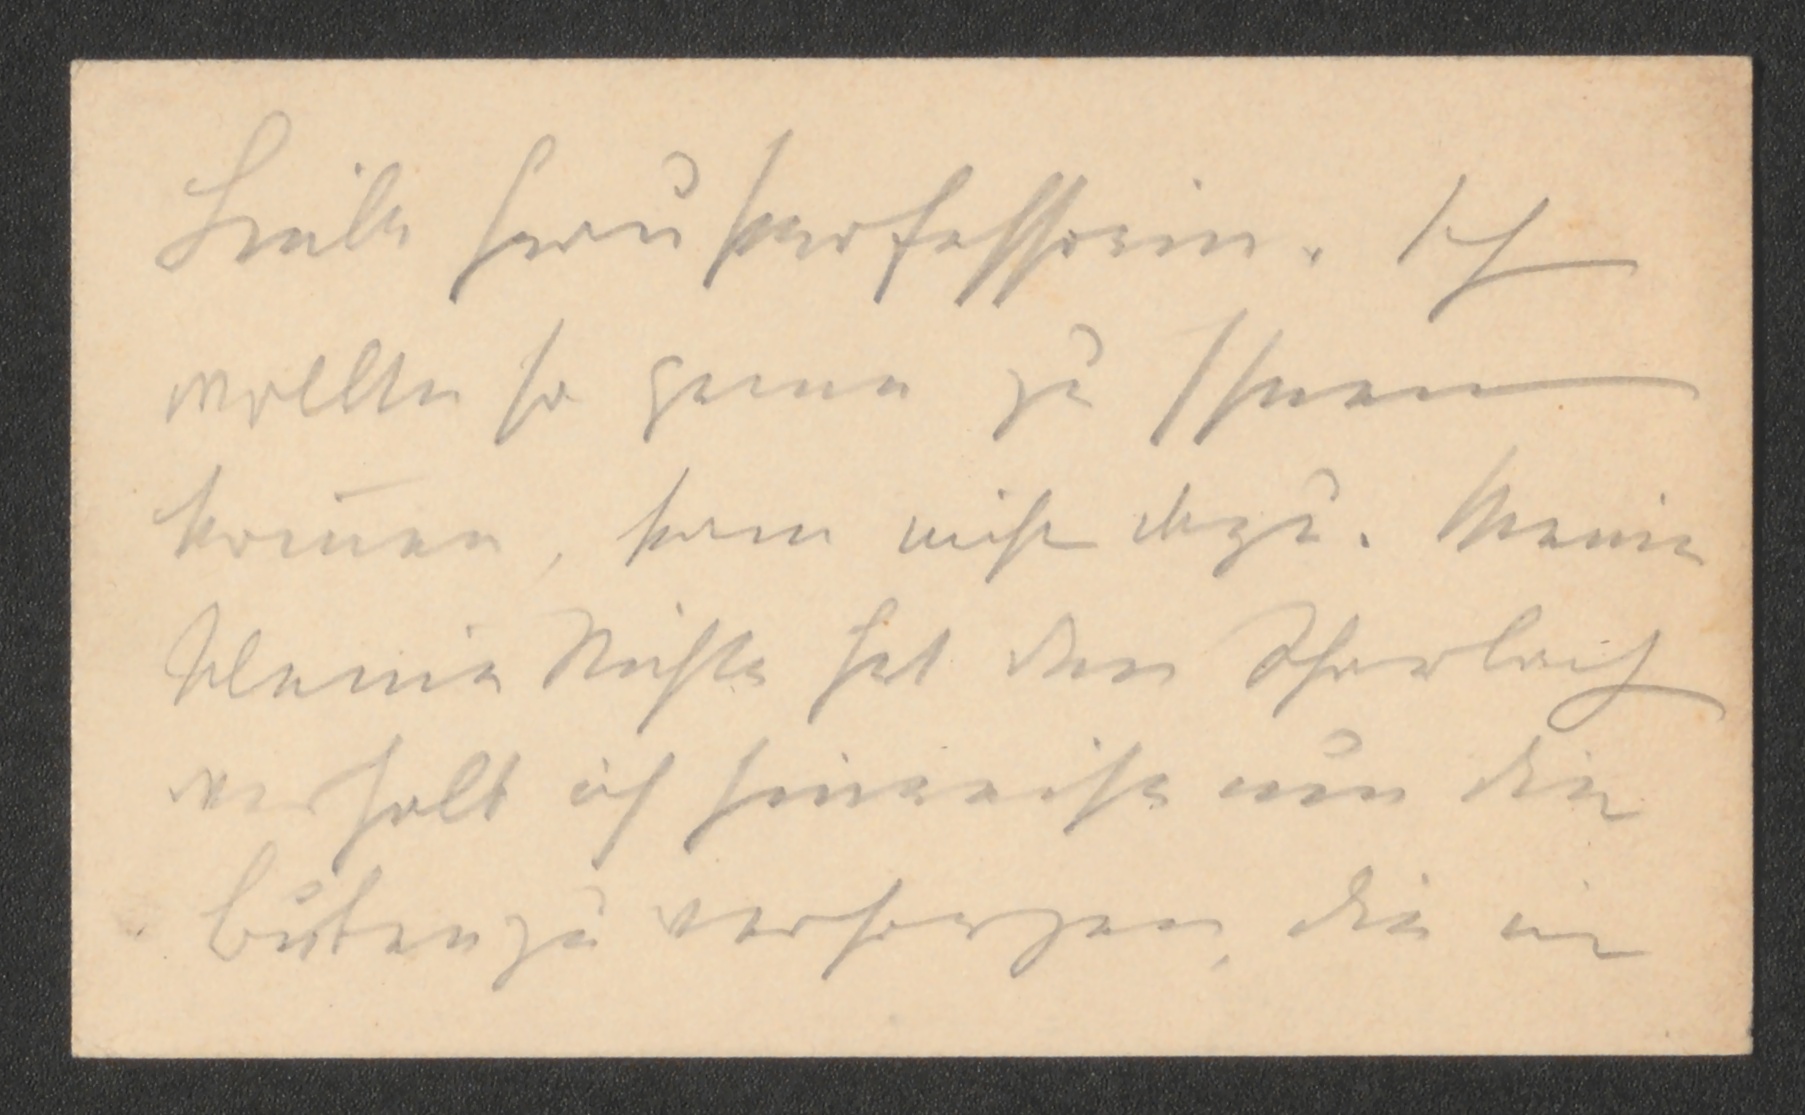 Liebe Frau Professorin. Ich
wollte so gerne zu Ihnen
kom̄en, kam nicht dazu. Meine
kleine Nichte hat den Scharlach
weshalb ich hinreiste um die
Buben zu versorgen, die in